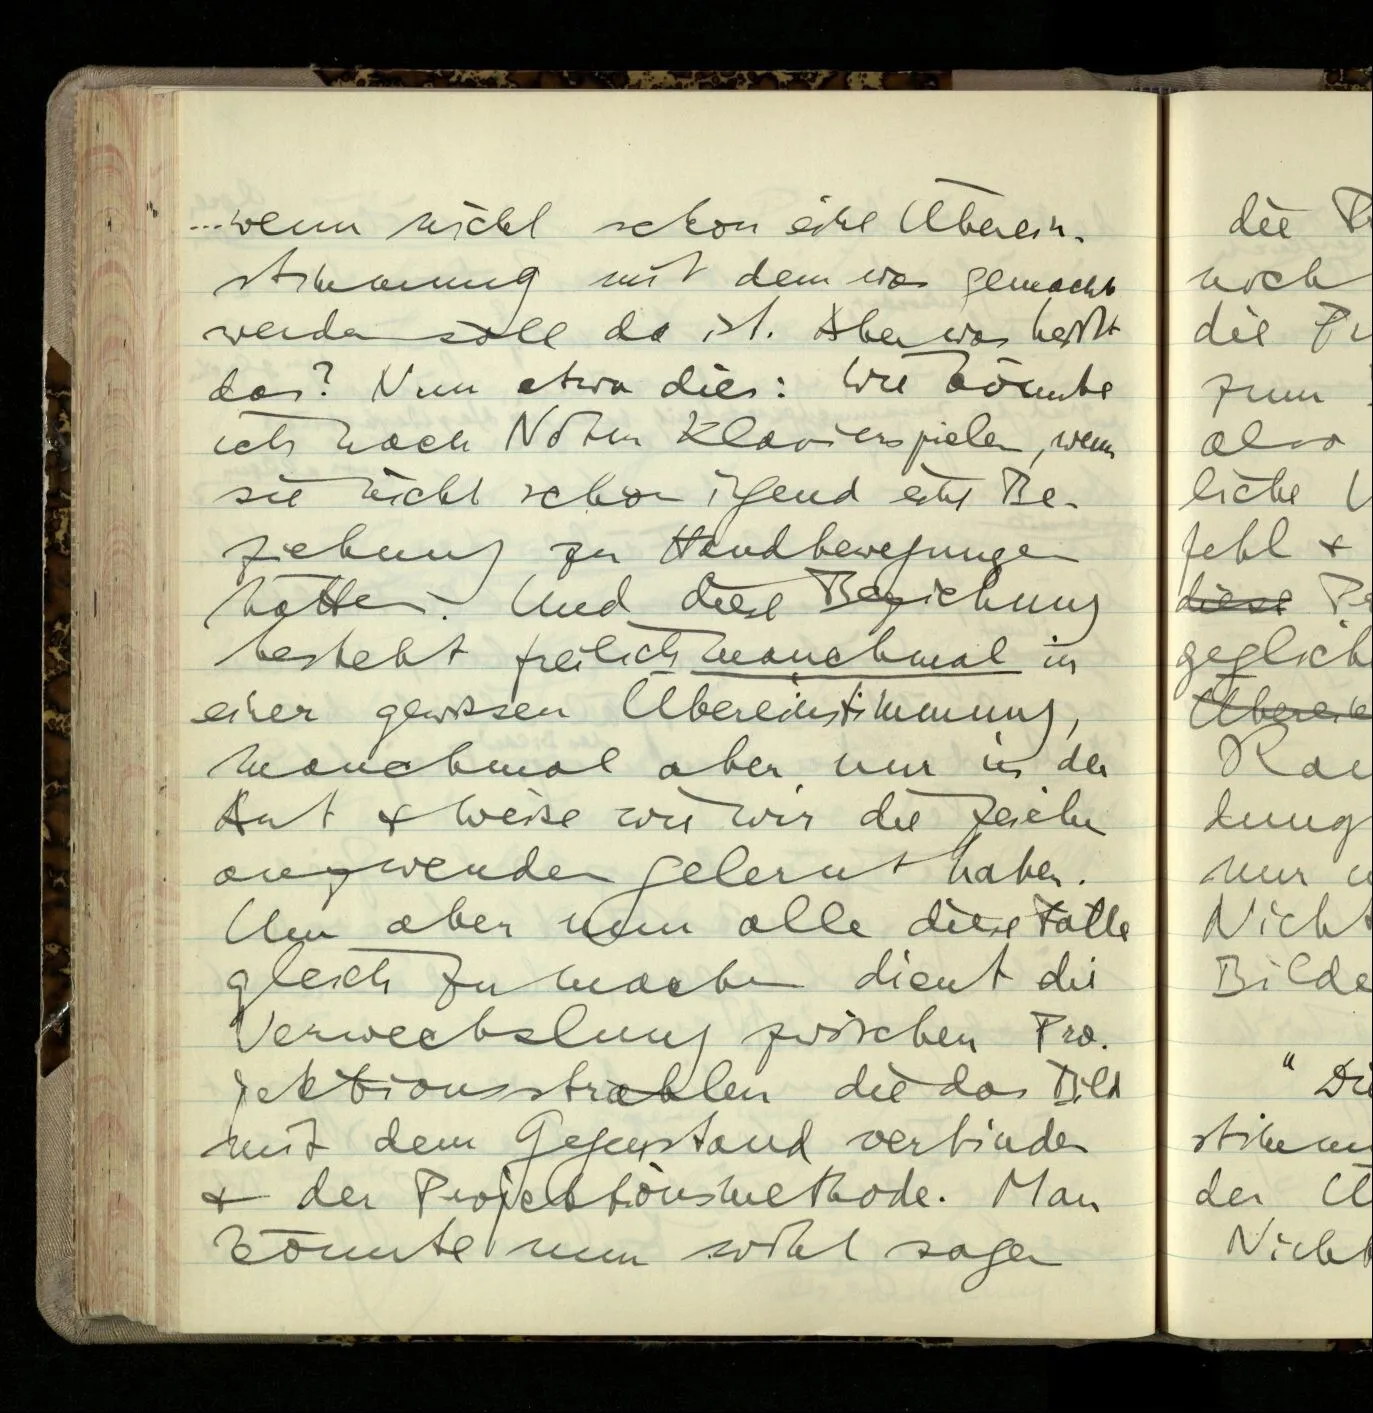 ...wenn nicht schon eine Überein-
stimmung mit dem was gemacht
werden soll da ist. Aber was heißt
das? Nun etwa dies: Wie könnte
ich nach Noten Klavierspielen, wenn
sie nicht schon irgend eine Be-
ziehung zu Handbewegungen
hätten. Und diese Beziehung
besteht freilich manchmal in
einer gewissen Übereinstimmung,
manchmal aber nur in der
Art & Weise wie wir die Zeichen
anzuwenden gelernt haben.
Um aber nun alle diese Fälle
gleich zu machen dient die
Verwechslung zwischen Pro-
jektionsstrahlen die das Bild
mit dem Gegenstand verbinden
& der Projektionsmethode. Man
könnte nun wohl sagen
die
noch
die
zum
also
liche
fehl &
diese
geglich
Überein
kung
nur
Nicht
Bilde
"Di
stimm
der Ü
Nicht